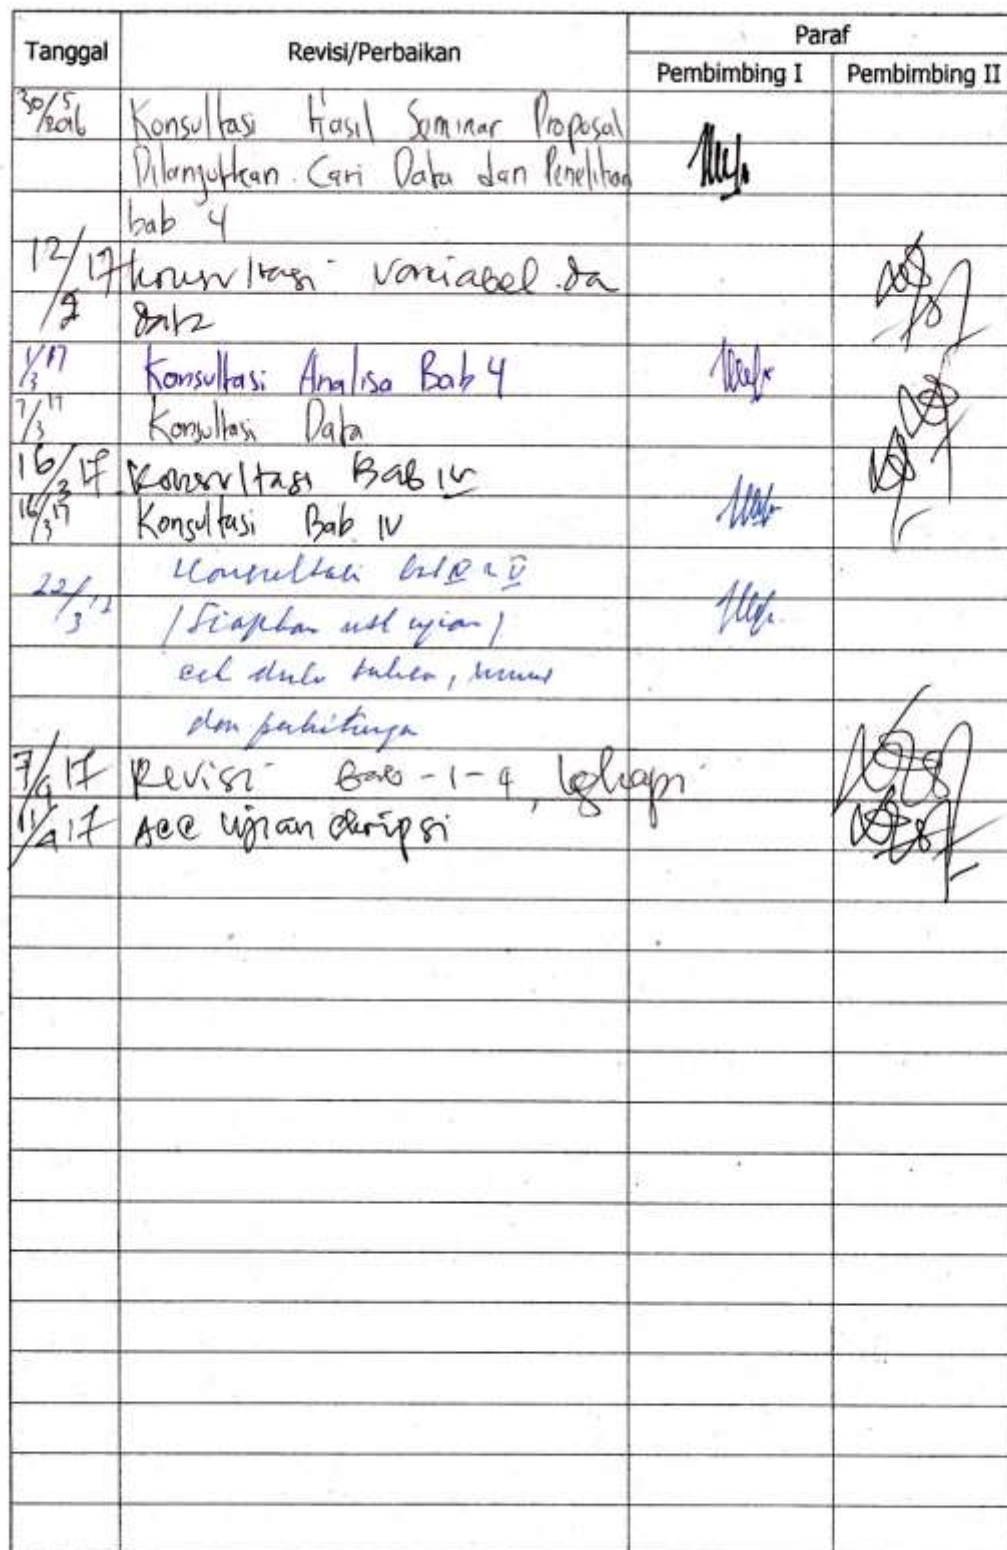 Tanggal Revisi/Perbaikan Paraf
Pembimbing I Pembimbing II
30/5/2016 Konsultasi Hasil Seminar Proposal
Dilanjutkan Cari Data dan Penelitian
bab 4
12/2 17 Konsultasi variabel da
data
1/3 17 Konsultasi Analisa Bab 4
7/3 17 Konsultasi Data
16/3 17 Konsultasi Bab IV
16/3 17 Konsultasi Bab IV
22/3 17 Konsultasi bab IV & V
(Siapkan utk ujian)
cek dulu tulisan, rumus
dan perhitungan
7/4 17 Revisi Bab - 1 - 4, lengkapi
11/4 17 ACC Ujian skripsi